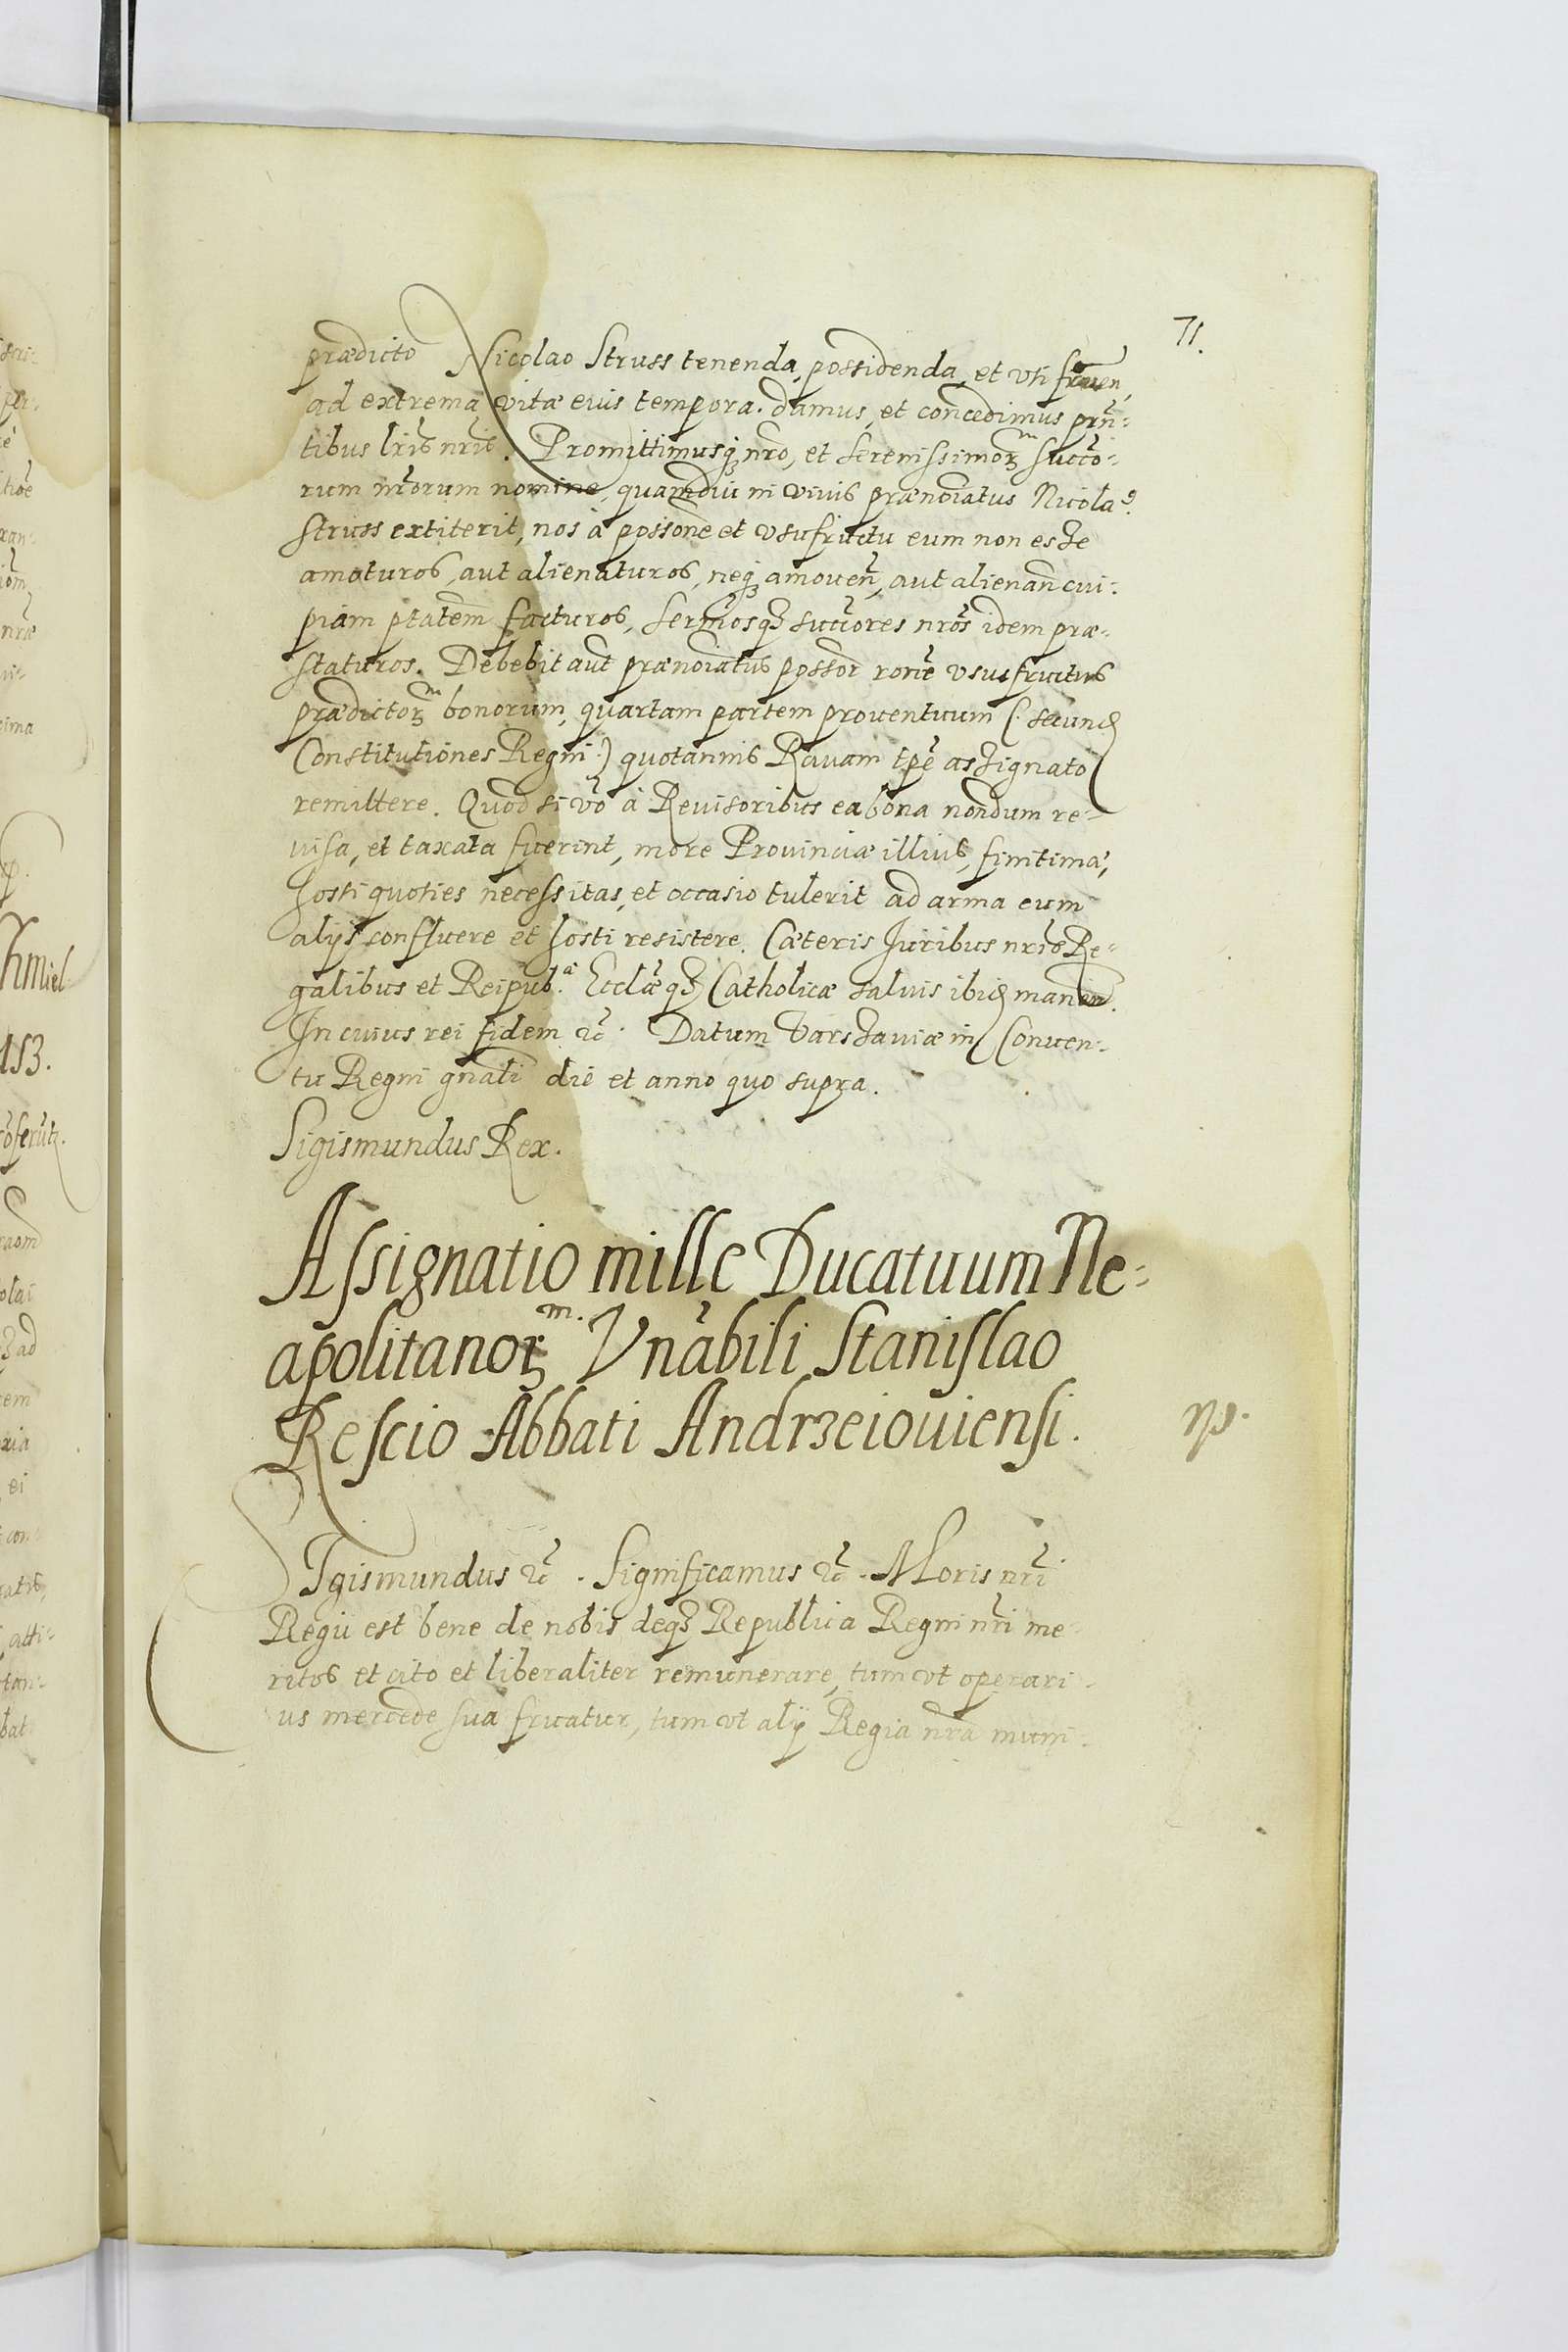 71.
prædicto Nicolao Struss tenenda, possidenda, et vti fruen̄,
ad extrema vitæ eius tempora. damus, et concedimus prn̄-
tibus lris nris. Promittimusq̨ nro, et Serenissimorum succō-
rum nrorum nomine, quamdiu in viuis prænoīatus Nicola9
Struss extiterit, nos à possōne et vsufructu eum non esse
amoturos, aut alienaturos, neq̨ amouen̄, aut alienan̄ cui-
piam ptatem facturos, Sermosq̨ succores nros idem præ-
staturos. Debebit aut prænoīatus possor rōne vsusfructus
prædictorum bonorum, quartam partem prouentuum (: secund
Constitutiones Regni :) quotannis Rauam tpe assignato
remittere. Quod si vō à Reuisoribus ea bona nondum re-
uisa, et taxata fuerint, more Prouinciæ illius, finitimæ,
hosti quoties necessitas, et occasio tulerit ad arma cum
alijs confluere et hosti resistere. Cæteris Juribus nris Re-
galibus et Reipub.ᵃ Ecclæq̨ Catholicæ saluis ibid manen̄.
In cuius rei fidem &c. Datum Varssauiæ in Conuen-
tu Regni gnali die et anno quo supra.
Sigismundus Rex.
Assignatio mille Ducatuum Ne-
apolitanorum. Vnàbili Stanislao
Rescio Abbati Andrzeiouiensi.
SIgismundus &c. Significamus &c. Moris nri
Regij est bene de nobis deq̨ Republica Regni nri me-
ritos et cito et liberaliter remunerare, tum vt operari-
us mercede sua fruatur, tum vt alij Regia nra muni-
153.